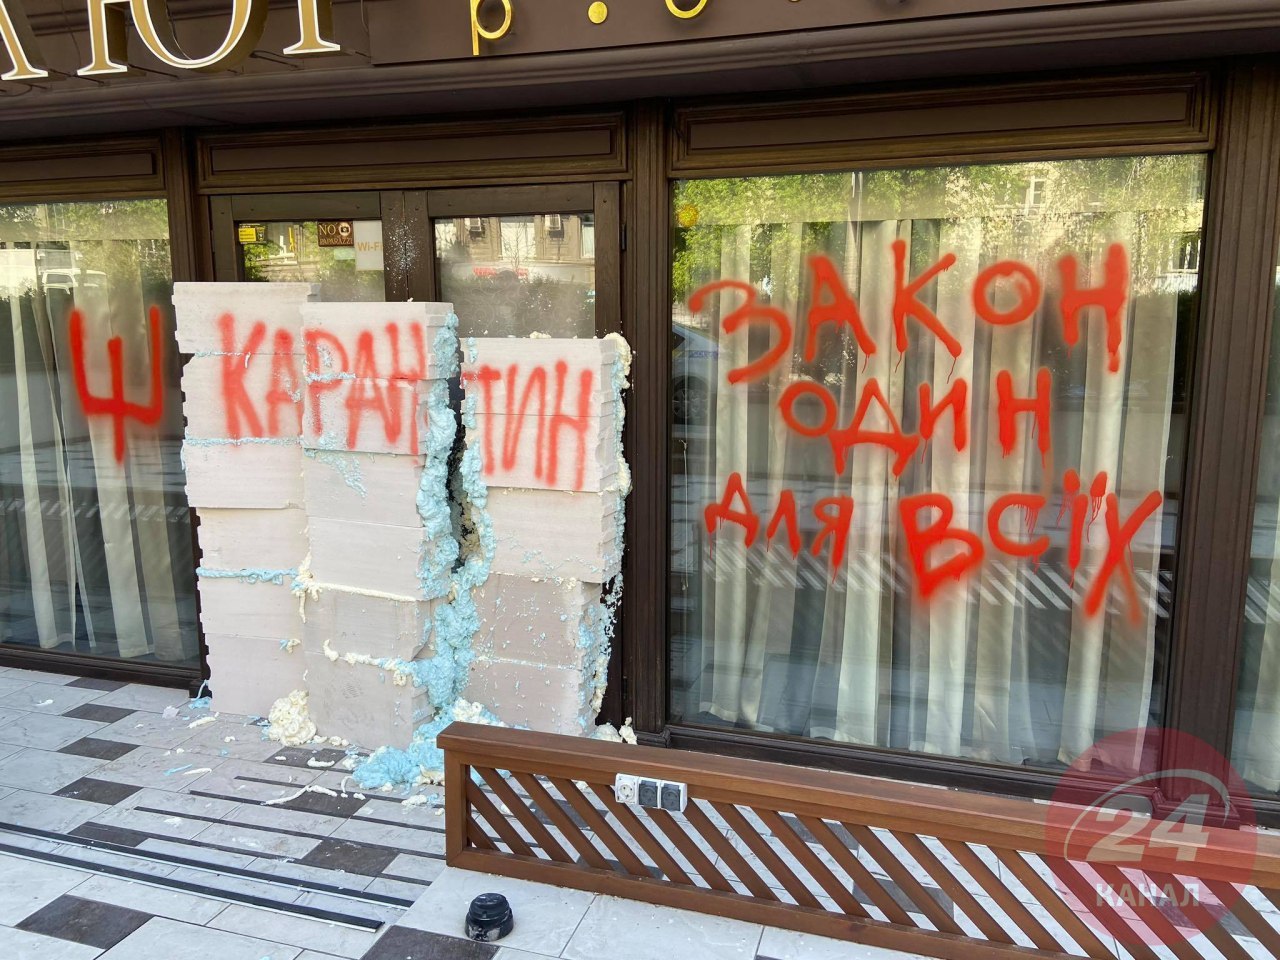 NO
PAPARAZZI
WI-FI
КАРАНТИН
ЗАКОН
ОДИН
ДЛЯ ВСІХ
24
КАНАЛ